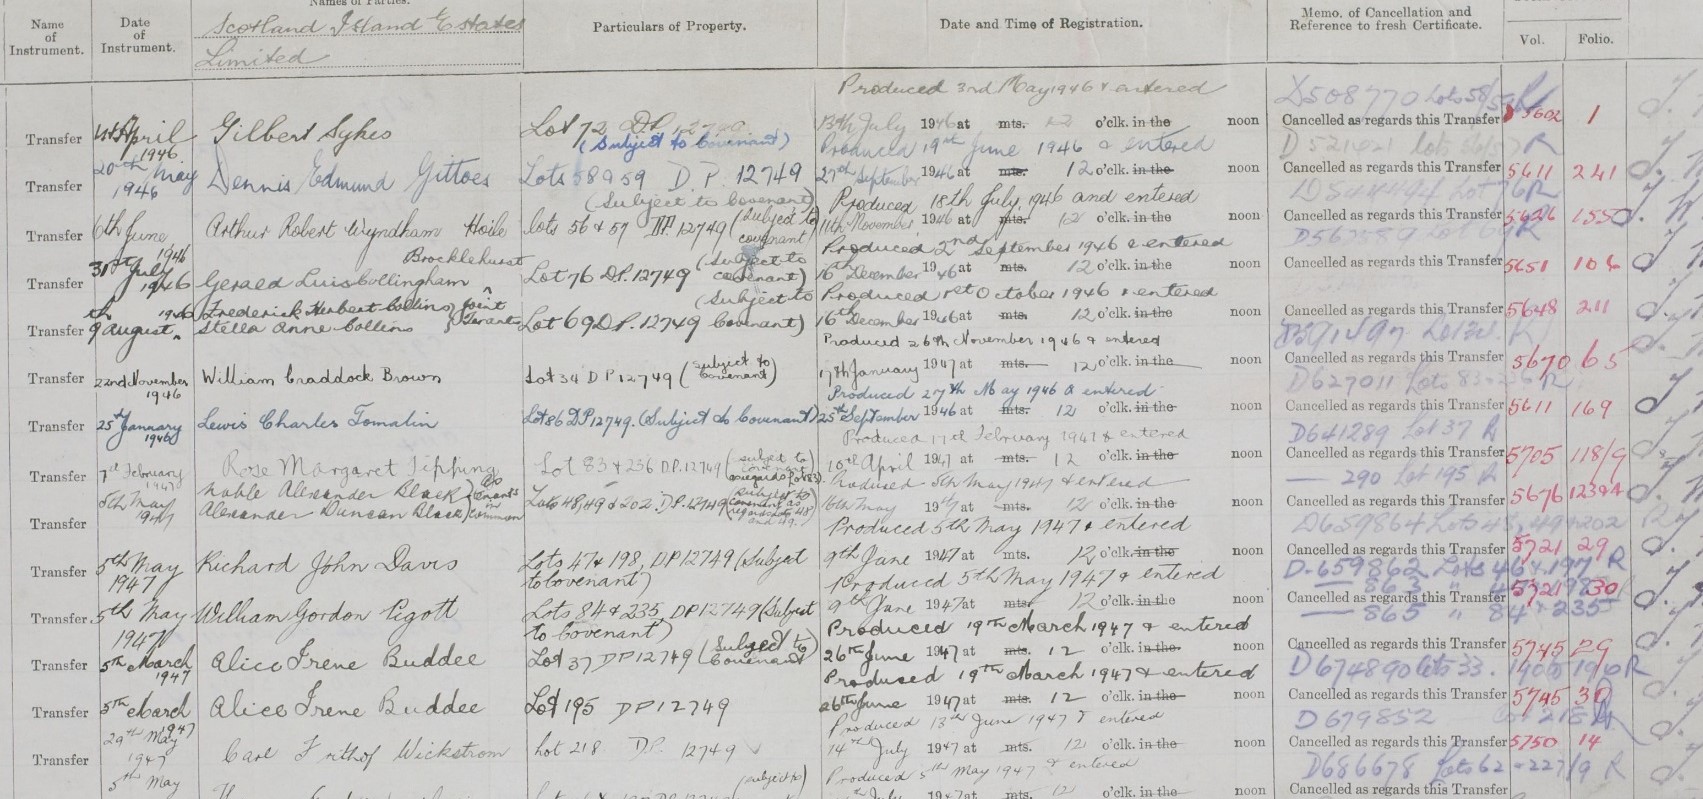 Name of Instrument. Date of Instrument. Names of Parties. Particulars of Property. Date and Time of Registration. Memo. of Cancellation and Reference to fresh Certificate. Vol. Folio.
Scotland Island Estates
Limited
Produced 3rd May 1946 & entered
D508770 Lots 58/59 R
Transfer April 1946 Gilbert Sykes Lot 72 D.P. 12749 (Subject to Covenant) 13th July 1946 at mts. 12 o'clk. in the noon Cancelled as regards this Transfer 5602 1
Produced 19th June 1946 & entered
lots 56/57 R
Transfer 20th May 1946 Dennis Edmund Gittoes Lots 58 & 59 D.P. 12749 (Subject to Covenant) 27th September 1946 at mts. 12 o'clk. in the noon Cancelled as regards this Transfer 5611 241
Produced 18th July 1946 and entered
Lot 76 R
Transfer 6th June 1946 Arthur Robert Wyndham Hoile lots 56 & 57 DP. 12749 (Subject to covenant) 11th November 1946 at mts. 12 o'clk. in the noon Cancelled as regards this Transfer 5626 155
Produced 2nd September 1946 & entered
Lot 69 R
Transfer 31st July 1946 Gerald Luis Brocklehurst Collingham Lot 76 DP. 12749 (Subject to Covenant) 16th December 1946 at mts. 12 o'clk. in the noon Cancelled as regards this Transfer 5651
Produced 1st October 1946 & entered
Transfer 9th August 1946 Frederick Herbert Collins Stella Anne Collins Joint Tenants Lot 69 DP. 12749 (Subject to Covenant) 16th December 1946 at mts. 12 o'clk. in the noon Cancelled as regards this Transfer 5648 211
Produced 26th November 1946 & entered
D591497 Lot 34 R
Transfer 22nd November 1946 William Craddock Brown Lot 34 DP 12749 (subject to Covenant) 17th January 1947 at mts. 12 o'clk. in the noon Cancelled as regards this Transfer 5670 65
Produced 27th May 1946 & entered
D627011 Lots 83 & 236 R
Transfer 25th January 1946 Lewis Charles Tomalin Lot 86 DP 12749. (Subject to Covenant) 25th September 1946 at mts. 12 o'clk. in the noon Cancelled as regards this Transfer 5611 169
Produced 17th February 1947 & entered
D641289 Lot 37 R
Transfer 7th February 1947 Rose Margaret Tipping Lot 83 & 236 D.P. 12749 (subject to covenant as regards Lot 83) 10th April 1947 at mts. 12 o'clk. in the noon Cancelled as regards this Transfer 5705 118/9
Produced 5th May 1947 & entered
290 Lot 195 R
Transfer 5th May 1947 Noble Alexander Black Alexander Duncan Black as Tenants in Common Lots 48, 49 & 202 D.P. 12749 (subject to covenant as regards Lots 48 and 49) 16th May 1947 at mts. 12 o'clk. in the noon Cancelled as regards this Transfer 5676
Produced 5th May 1947 & entered
D659864 Lots 48, 49 & 202 R
Transfer 5th May 1947 Richard John Davis Lots 47 & 198, DP 12749 (Subject to Covenant) 9th June 1947 at mts. 12 o'clk. in the noon Cancelled as regards this Transfer 5721 29
Produced 5th May 1947 & entered
D659862 Lots 46 & 197 R
863
Transfer 5th May 1947 William Gordon Pigott Lots 84 & 235, DP 12749 (Subject to Covenant) 9th June 1947 at mts. 12 o'clk. in the noon Cancelled as regards this Transfer 5721 30
865 " 84 & 235
Produced 19th March 1947 & entered
Transfer 5th March 1947 Alice Irene Buddee Lot 37 DP 12749 (Subject to Covenant) 26th June 1947 at mts. 12 o'clk. in the noon Cancelled as regards this Transfer 5745 29
Produced 19th March 1947 & entered
D674890 Lots 33. 190 R
Transfer 5th March 1947 Alice Irene Buddee Lot 195 DP 12749 26th June 1947 at mts. 12 o'clk. in the noon Cancelled as regards this Transfer 5745 30
Produced 13th June 1947 & entered
D679852 Lot 218 R
Transfer 29th May 1947 Carl Frithof Wickstrom Lot 218 DP. 12749 14th July 1947 at mts. 12 o'clk. in the noon Cancelled as regards this Transfer 5750 14
Produced 5th May 1947 & entered
D686678 Lots 62 & 227/9 R
5th May (subject to July 1947 at mts. 12 o'clk. in the noon Cancelled as regards this Transfer